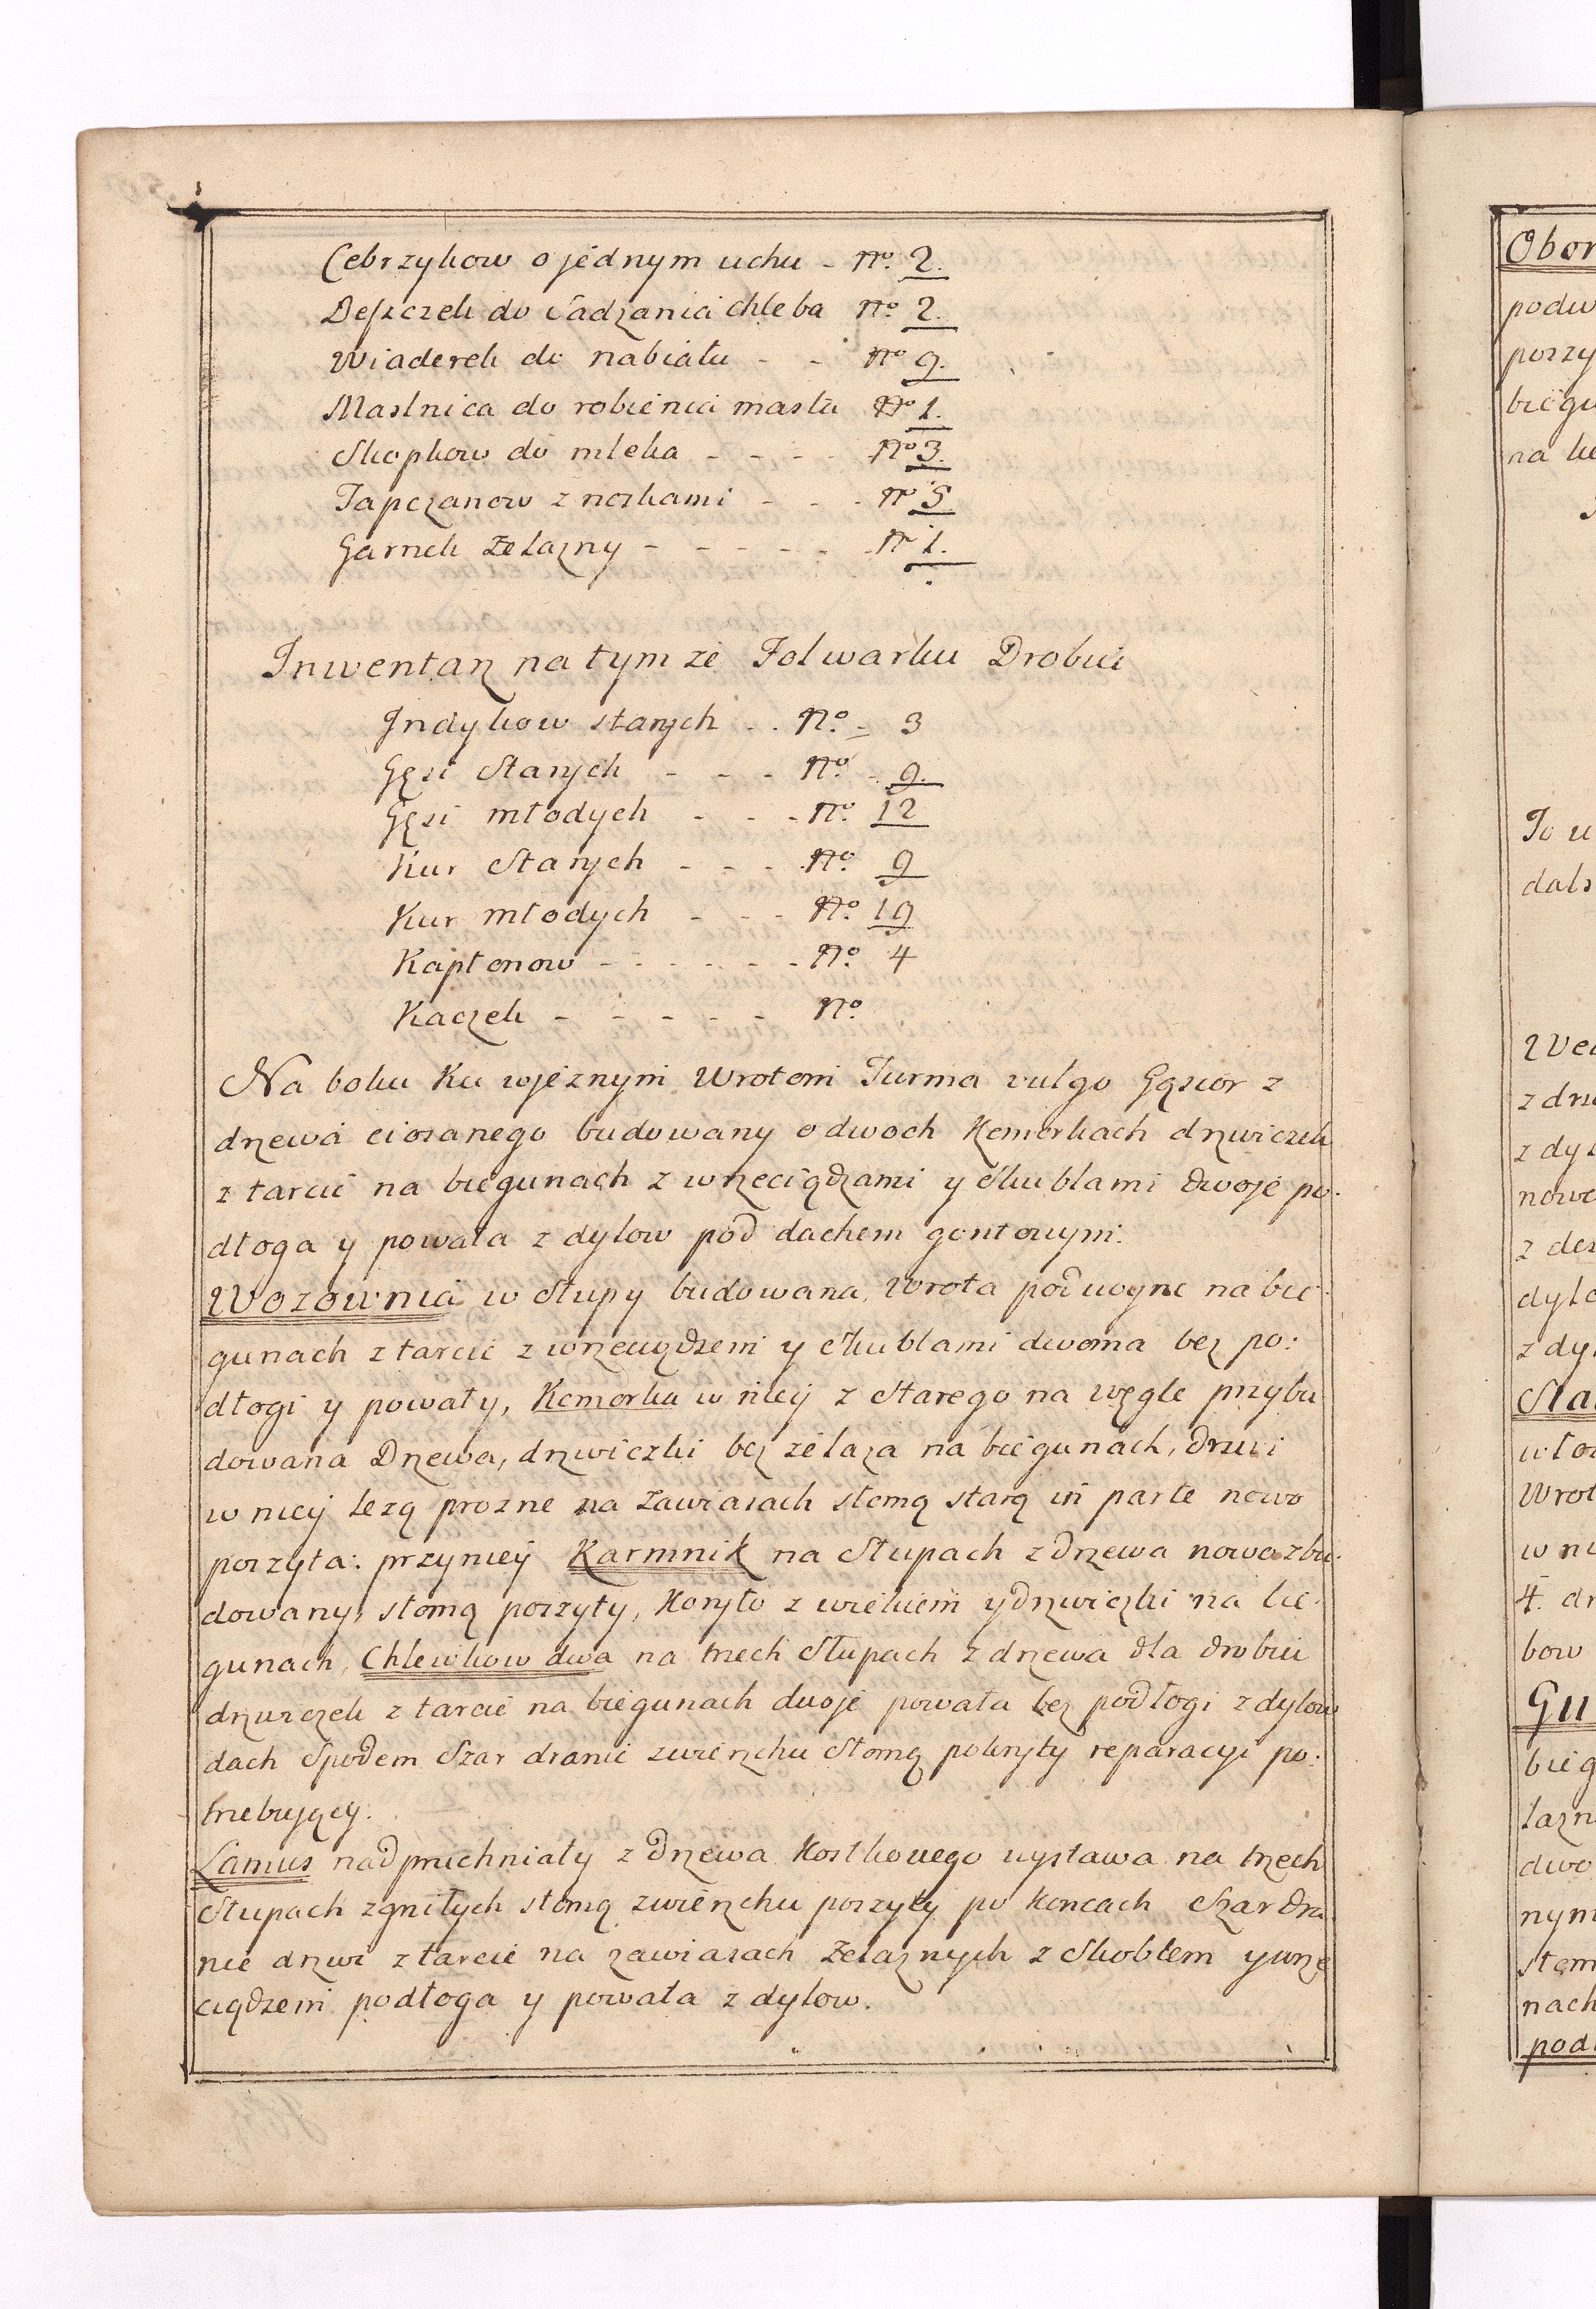 Cebrzykow o jednym uchu - No. 2.
Deszczek do sadzania chleba No 2.
Wiaderek do nabiału - - No 9.
Maslnica do robienia masła No 1.
Skopkow do mleka - - - - No 3.
Tapczanow z noskami - - - No 5
Garnek Żelazny - - - - - - No 1.
Inwentarz na tym ze Folwarku Drobiu
Indykow starych - . No. - 3
Gęsi Starych - - - No. - 9.
Gęsi młodych - - - No. 12
Kur Starych - - - No. 9
Kur młodych - - - No. 19
Kapłonow - - - - - - No. 4
Kaczek - - - - - No.
Na boku Ku wjeznym Wrotom Turma vulgo Gąsior z
drzewa ciosanego budowany o dwoch Komorkach drzwiczek
z tarcic na biegunach z wrzeciądzami y skublami dwoje po:
dłoga y powała z dylow pod dachem gontowym.
Wozownia w Słupy budowana, Wrota podwoyne na bie:
gunach z tarcic z wrzeciądzem y skublami dwoma bez po:
dłogi y powały, Komorka w niey z Starego na węgle przybu
dowana Drzewa, drzwiczki bez żelaza na biegunach, drzwi
w niey lezą prozne na zawiasach słomą starą in parte nowo
poszyta: przyniey Karmnik na Słupach z drzewa nowo zbu:
dowany, słomą poszyty, Koryto z wiekiem y drzwiczki na bie:
gunach, Chlewikow dwa na trzech Słupach z drzewa dla drobiu
drzwiczek z tarcic na biegunach dwoje powała bez podłogi z dylow
dach Spodem Szar dranic zwierzchu Słomą pokryty reparacyi po:
trzebujący.
Lamus nadpruchniały z Drzewa Kostkowego wystawa na trzech
Słupach zgniłych słomą zwierzchu poszyty po Koncach Szar dra
nic drzwi z tarcic na zawiasach Żelaznych z Skoblem y wrze
ciądzem podłoga y powała z dylow.
Obor
podw
poszy
biegu
To u
dals
z dy
nowe
z des
dylo
z dyl
Sta
Wrot
w ni
4. dr
bow
Gu
bieg
dwo
nym
nach
pod